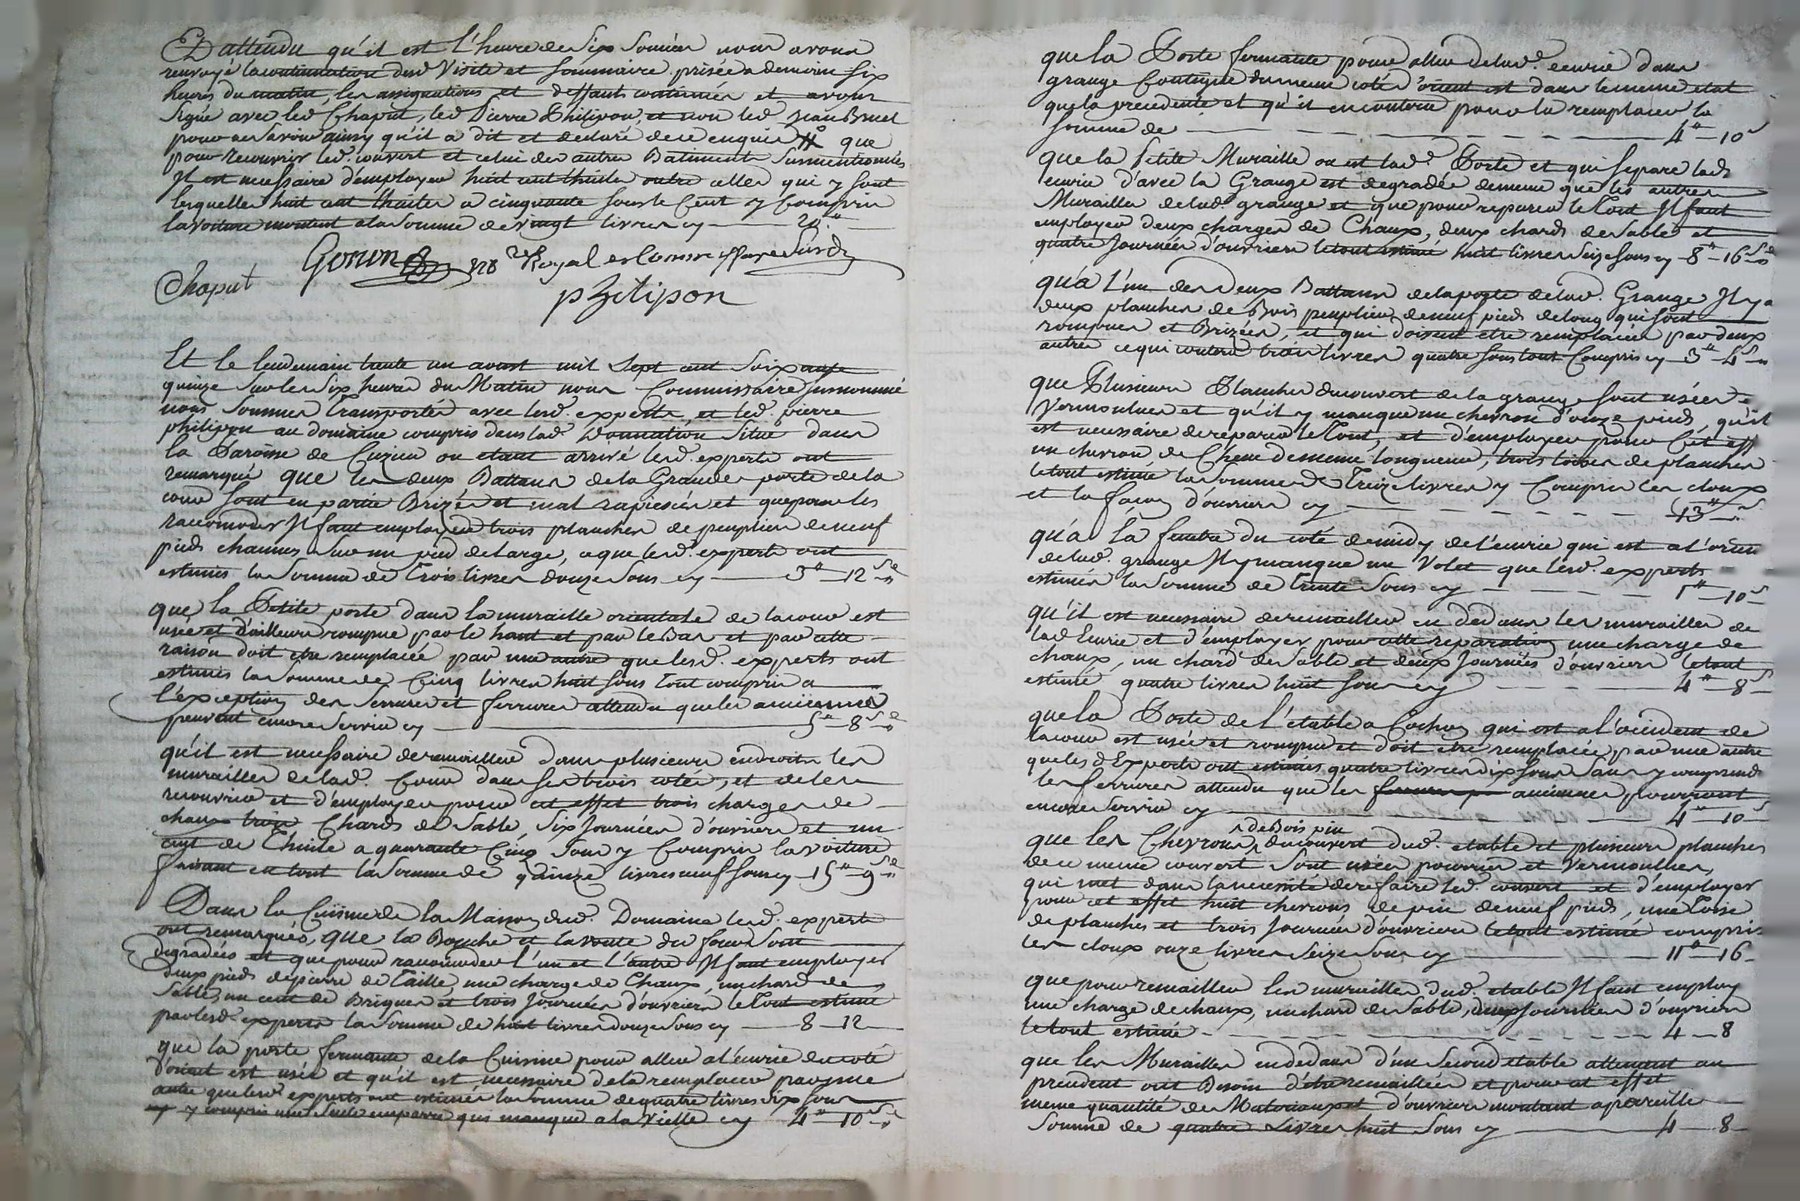 Et attendu qu'il est l'heure de six sonnées nous avons
renvoyé la continuation dud. Visite et sommaire prisée a demain six
heures du matin, les assignations et deffauts continués et avons
signé avec led. Chaput, led. Pierre Philipon, et non led. Jean Bruel
pour ne savoir ainsy qu'il a dit et declaré de ce enquis que
pour recouvrir led. couvert et celui des autres Batiments susmentionnés
Il est necessaire d'employer huit cent thuiles outre celles qui y sont
lesquelles huit cent thuiles a cinquante sous le Cent y Compris
la voiture montent a la somme de vingt livres cy — 20 ""
Gonon Royal et Commissaire
Chaput
philipon
Et le lendemain trente un aoust mil sept cent soixante
quinze sur les six heures du Matin nous Commissaire susnommé
nous sommes transportés avec lesd. experts, et led. pierre
philipon au domaine compris dans lad. Donnation situé dans
la Paroisse de Cuzieu ou etant arrivé lesd. experts ont
remarqué que les deux Battans de la Grande porte de la
cour sont en partie Brizés et mal rapiecés et que pour les
racomoder Il faut employer trois planches de peuplier de neuf
pieds chacunes sur un pied de large, a que lesd. experts ont
estimés la somme de Trois livres douze sous cy — 3" 12 s
que la Petite porte dans la muraille orientale de la cour est
usée et d'ailleurs rompue par le haut et par le Bas et par cette
raison doit etre remplacée par une autre que lesd. experts ont
estimés la somme de Cinq livres huit sous tout compris a
l'exception des serrures et ferrures attendu que les anciennes
peuvent encore servir cy — 5" 8 s
qu'il est necessaire de remailler dans plusieurs endroits les
murailles de lad. Cour dans ses trois cotés, et de les
recouvrir et d'employer pour cet effet trois charges de
chaux trois Chards de Sable, six Journées d'ouvriers et un
cent de Thuile a quarante Cinq sous y Compris la voiture
faisant en tout la somme de quinze livres neuf sous cy — 15" 9 s
Dans la Cuisine de la Maison dud. Domaine lesd. experts
ont remarqués, que la Bouche et la voute du four sont
degradées et que pour racomoder l'un et l'autre Il faut employer
deux pieds de pierre de Taille, une charge de Chaux, un chard de
Sable, un cent de Briques et trois Journées d'ouvriers le tout estimé
par lesd. experts la somme de huit livres douze sous cy — 8 — 12
que la porte fermante de la Cuisine pour aller a l'ecurie du coté
d'orient est usée et qu'il est necessaire de la remplacer par une
autre que lesd. experts ont estimés la somme de quatre livres dix sous
y compris une seule emparre qui manque a la vielle cy — 4" 10 s
que la Porte fermante pour aller de lad. ecurie dans
grange Contigue du meme coté d'orient est dans le meme etat
que la precedente et qu'il en coutera pour la remplacer la
somme de — 4" 10 s
que la Petite Muraille ou est lad. Porte et qui separe lad.
ecurie d'avec la Grange est degradée de meme que les autres
Murailles de lad. grange et que pour reparer le tout Il faut
employer deux charges de Chaux, deux chards de sable et
quatre Journées d'ouvriers le tout estimé huit livres seize sous cy — 8" 16 s
qu'a l'un des deux Battans de la porte de lad. Grange Il y a
deux planches de Bois peuplier de neuf pieds de long qui sont
rompues et Brizées, et qui doivent etre remplacées par deux
autres ce qui coutera trois livres quatre sous tout Compris cy — 3" 4 s
que Plusieurs Planches du couvert de la grange sont usées
Vermoulues et qu'il y manque un chevron d'onze pieds, qu'il
est necessaire de reparer le tout, et d'employer pour Cet eff
un chevron de Chene de meme longueur, trois toises de planches
le tout estimé la somme de Treize livres y Compris les cloux
et la façon d'ouvriers cy — 13"
qu'a la fenetre du coté de midy de l'ecurie qui est a l'orient
de lad. grange Il y manque un Volet que lesd. experts
estimés la somme de trente sous cy — 1" 10 s
qu'il est necessaire de remailler en dedans les murailles de
lad. Ecurie et d'employer pour cette reparation une charge de
chaux, un chard de sable et deux Journées d'ouvriers le tout
estimé quatre livres huit sous cy — 4" 8 s
que la Porte de l'etable a Cochon qui est a l'occident de
la cour est usée et rompue et doit etre remplacée par une autre
que lesd Experts ont estimés quatre livres dix sous sans y comprendre
les ferrures attendu que les anciennes pourront
encore servir cy — 4" 10 s
que les Chevrons de Bois pin du couvert dud. etable et plusieurs planches
de ce meme couvert sont usées pourries et Vermoulues,
qui met dans la necessité de refaire led. couvert et d'employer
pour cet effet huit chevrons de pin de neuf pieds, une toise
de planches et trois Journées d'ouvriers le tout estimé compris
les cloux onze livres seize sous cy — 11" 16
que pour remailler les murailles dud. etable Il faut employer
une charge de chaux, un chard de Sable, deux Journées d'ouvriers
le tout estimé — 4 — 8
que les Murailles en dedans d'un second etable attenant au
precedent ont Besoin d'etre remaillées et pour cet effet
meme quantité de Materiaux et d'ouvriers montant a pareille
Somme de quatre Livres huit sous cy — 4 — 8